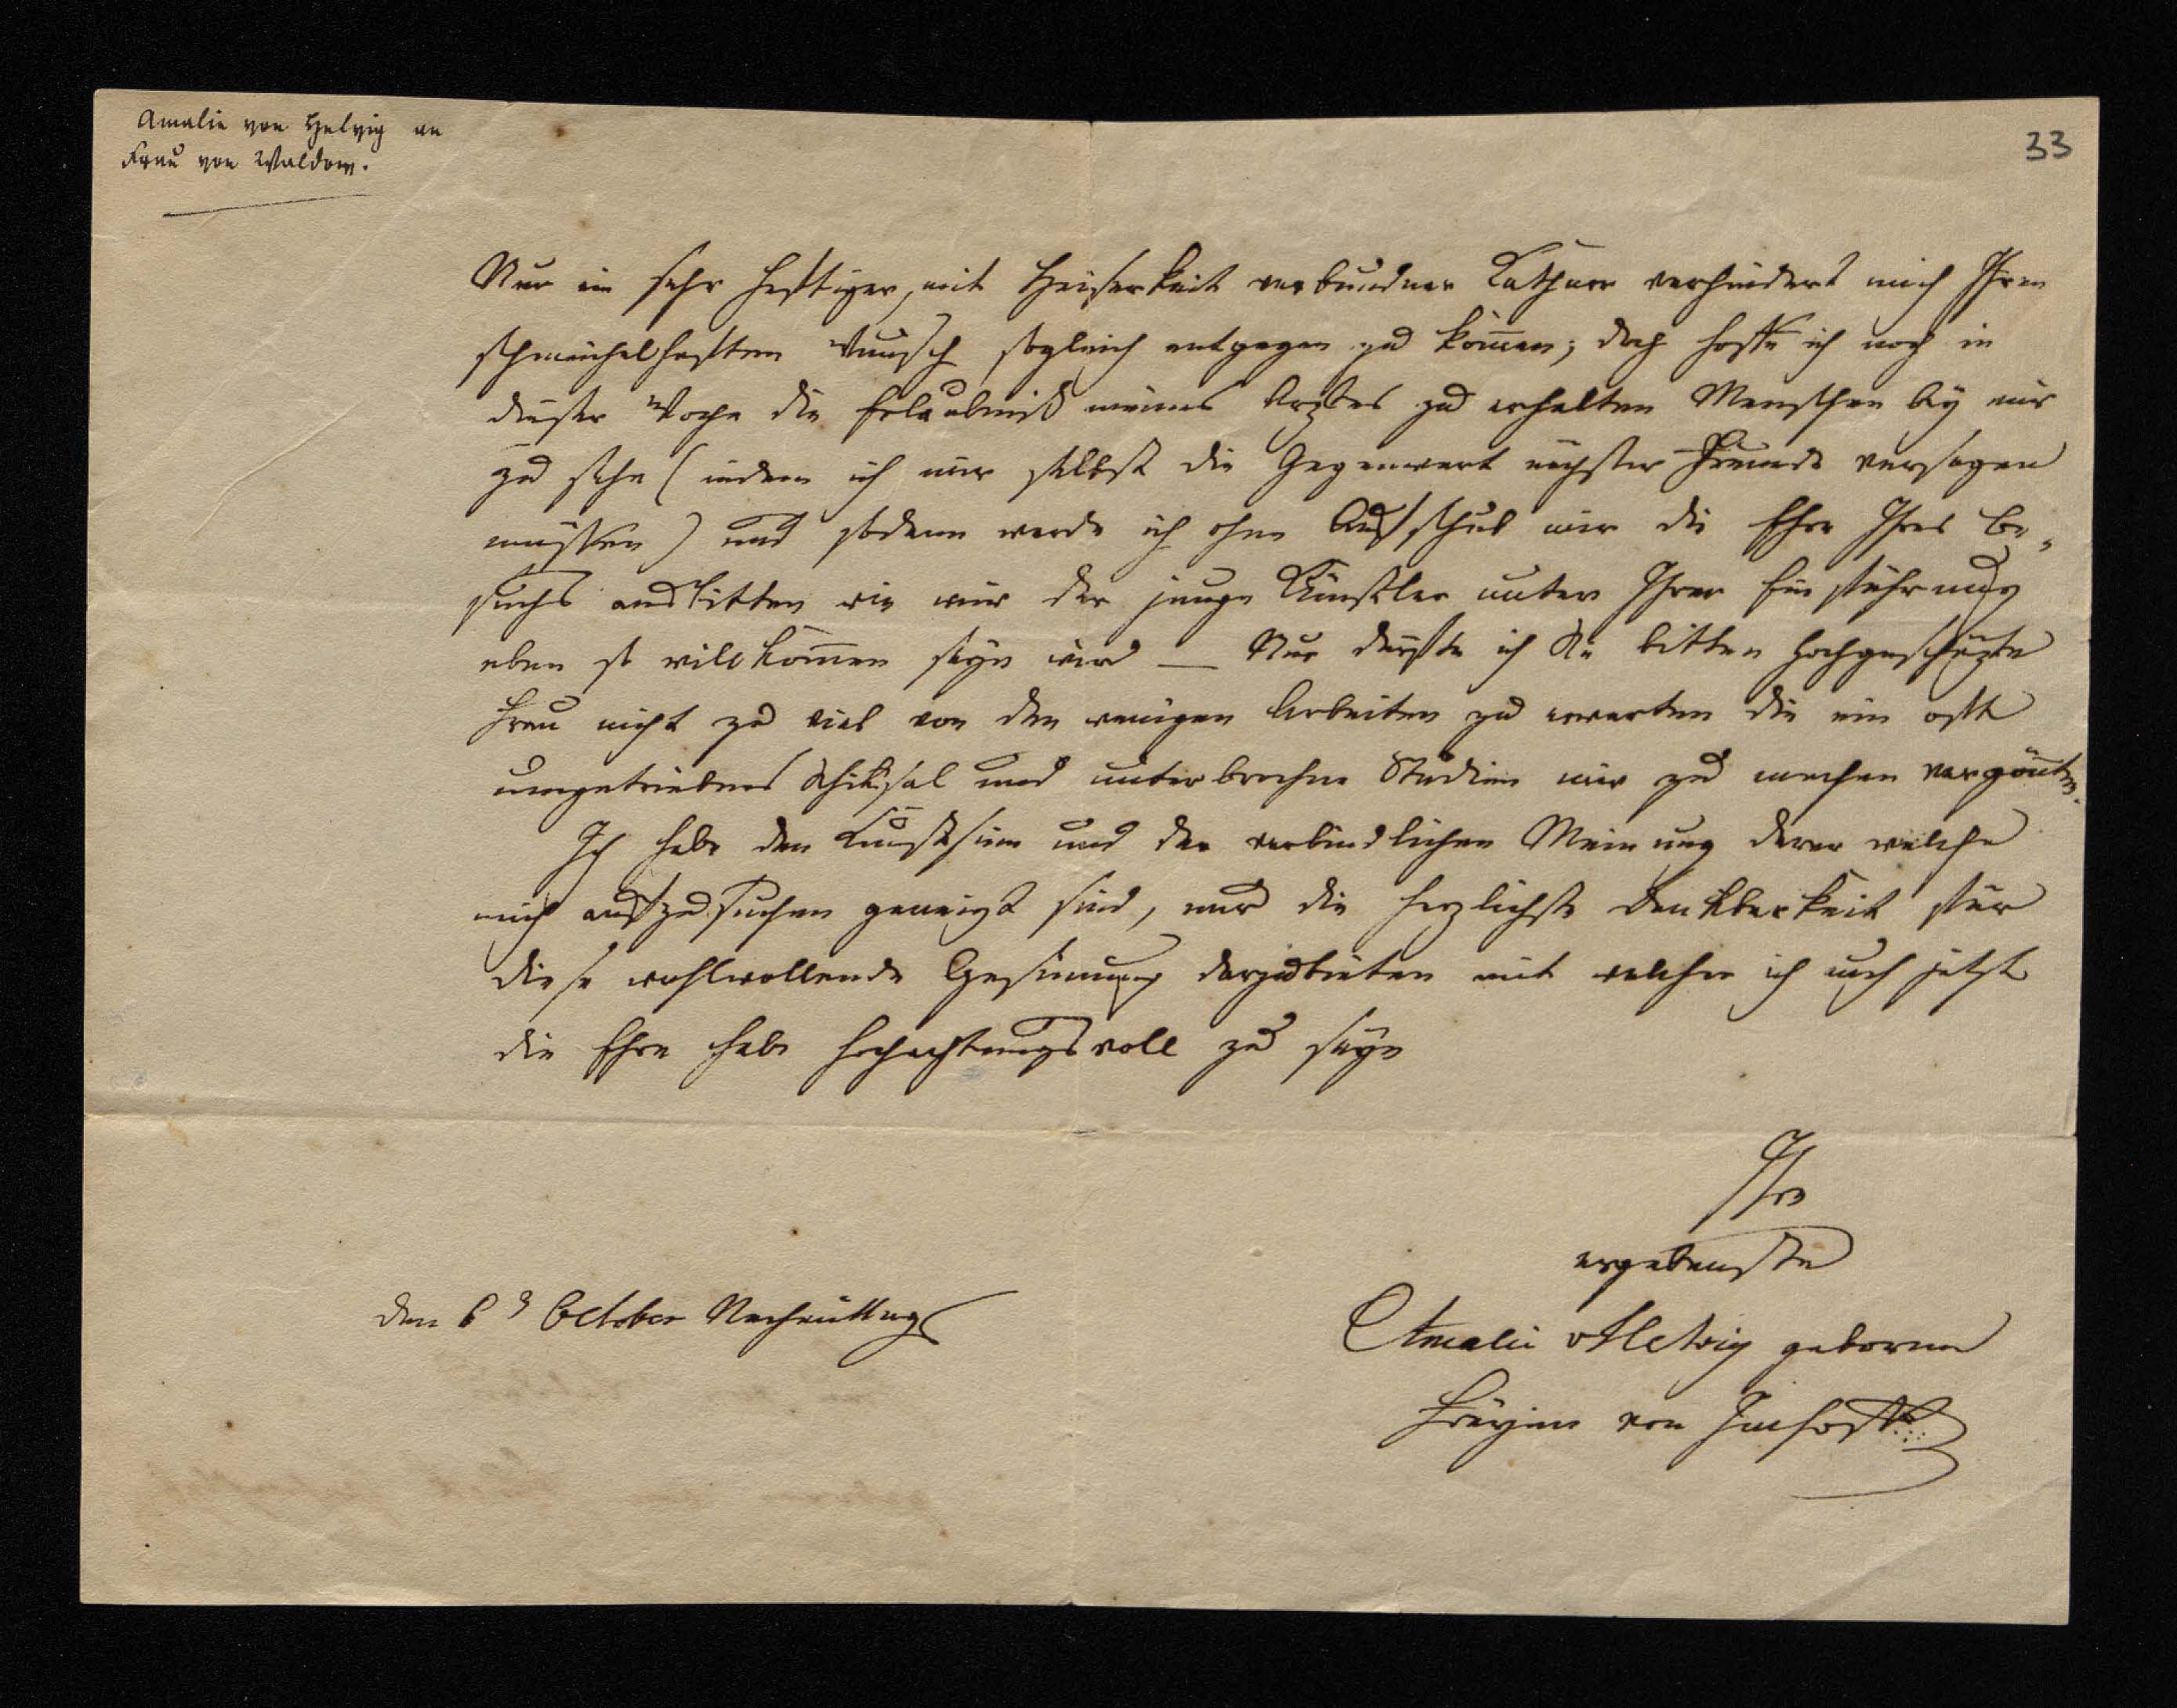 Amalie von Helvig an
Frau von Waldow.
33
Nur ein sehr heftiger, mit Heiserkeit verbundner Catharr verhindert mich Ihren
schmeichelhaften Wunsch sogleich entgegen zu kom̄en; doch hoffe ich noch in
dieser Woche die Erlaubniß meines Arztes zu erhalten Menschen bey mir
zu sehn (indem ich mir selbst die Gegenwart nächster Freunde versagen
müssen) und sodann werde ich ohne Aufschub mir die Ehre Ihres Be-
suchs ausbitten wie mir der junge Künstler unter Ihrer Einführung
eben so willkom̄en seyn wird — Nur dürfte ich Sie bitten hochgeschäzte
Frau nicht zu viel von den wenigen Arbeiten zu erwarten die ein oft
umgetriebnes Schiksal und unterbrochne Studien mir zu machen vergönten.
Ich habe den Kunstsinn und der verbindlichen Meinung derer welche
mich aufzusuchen geneigt sind, nur die herzlichste Dankbarkeit für
diese wohlwollende Gesinnung darzubieten mit welcher ich auch jetzt
die Ehre habe hochachtungsvoll zu seyn
Ihre
ergebenste
den 6 October Nachmittags
Amalie v Helvig geborne
Freyinn von Imhoff